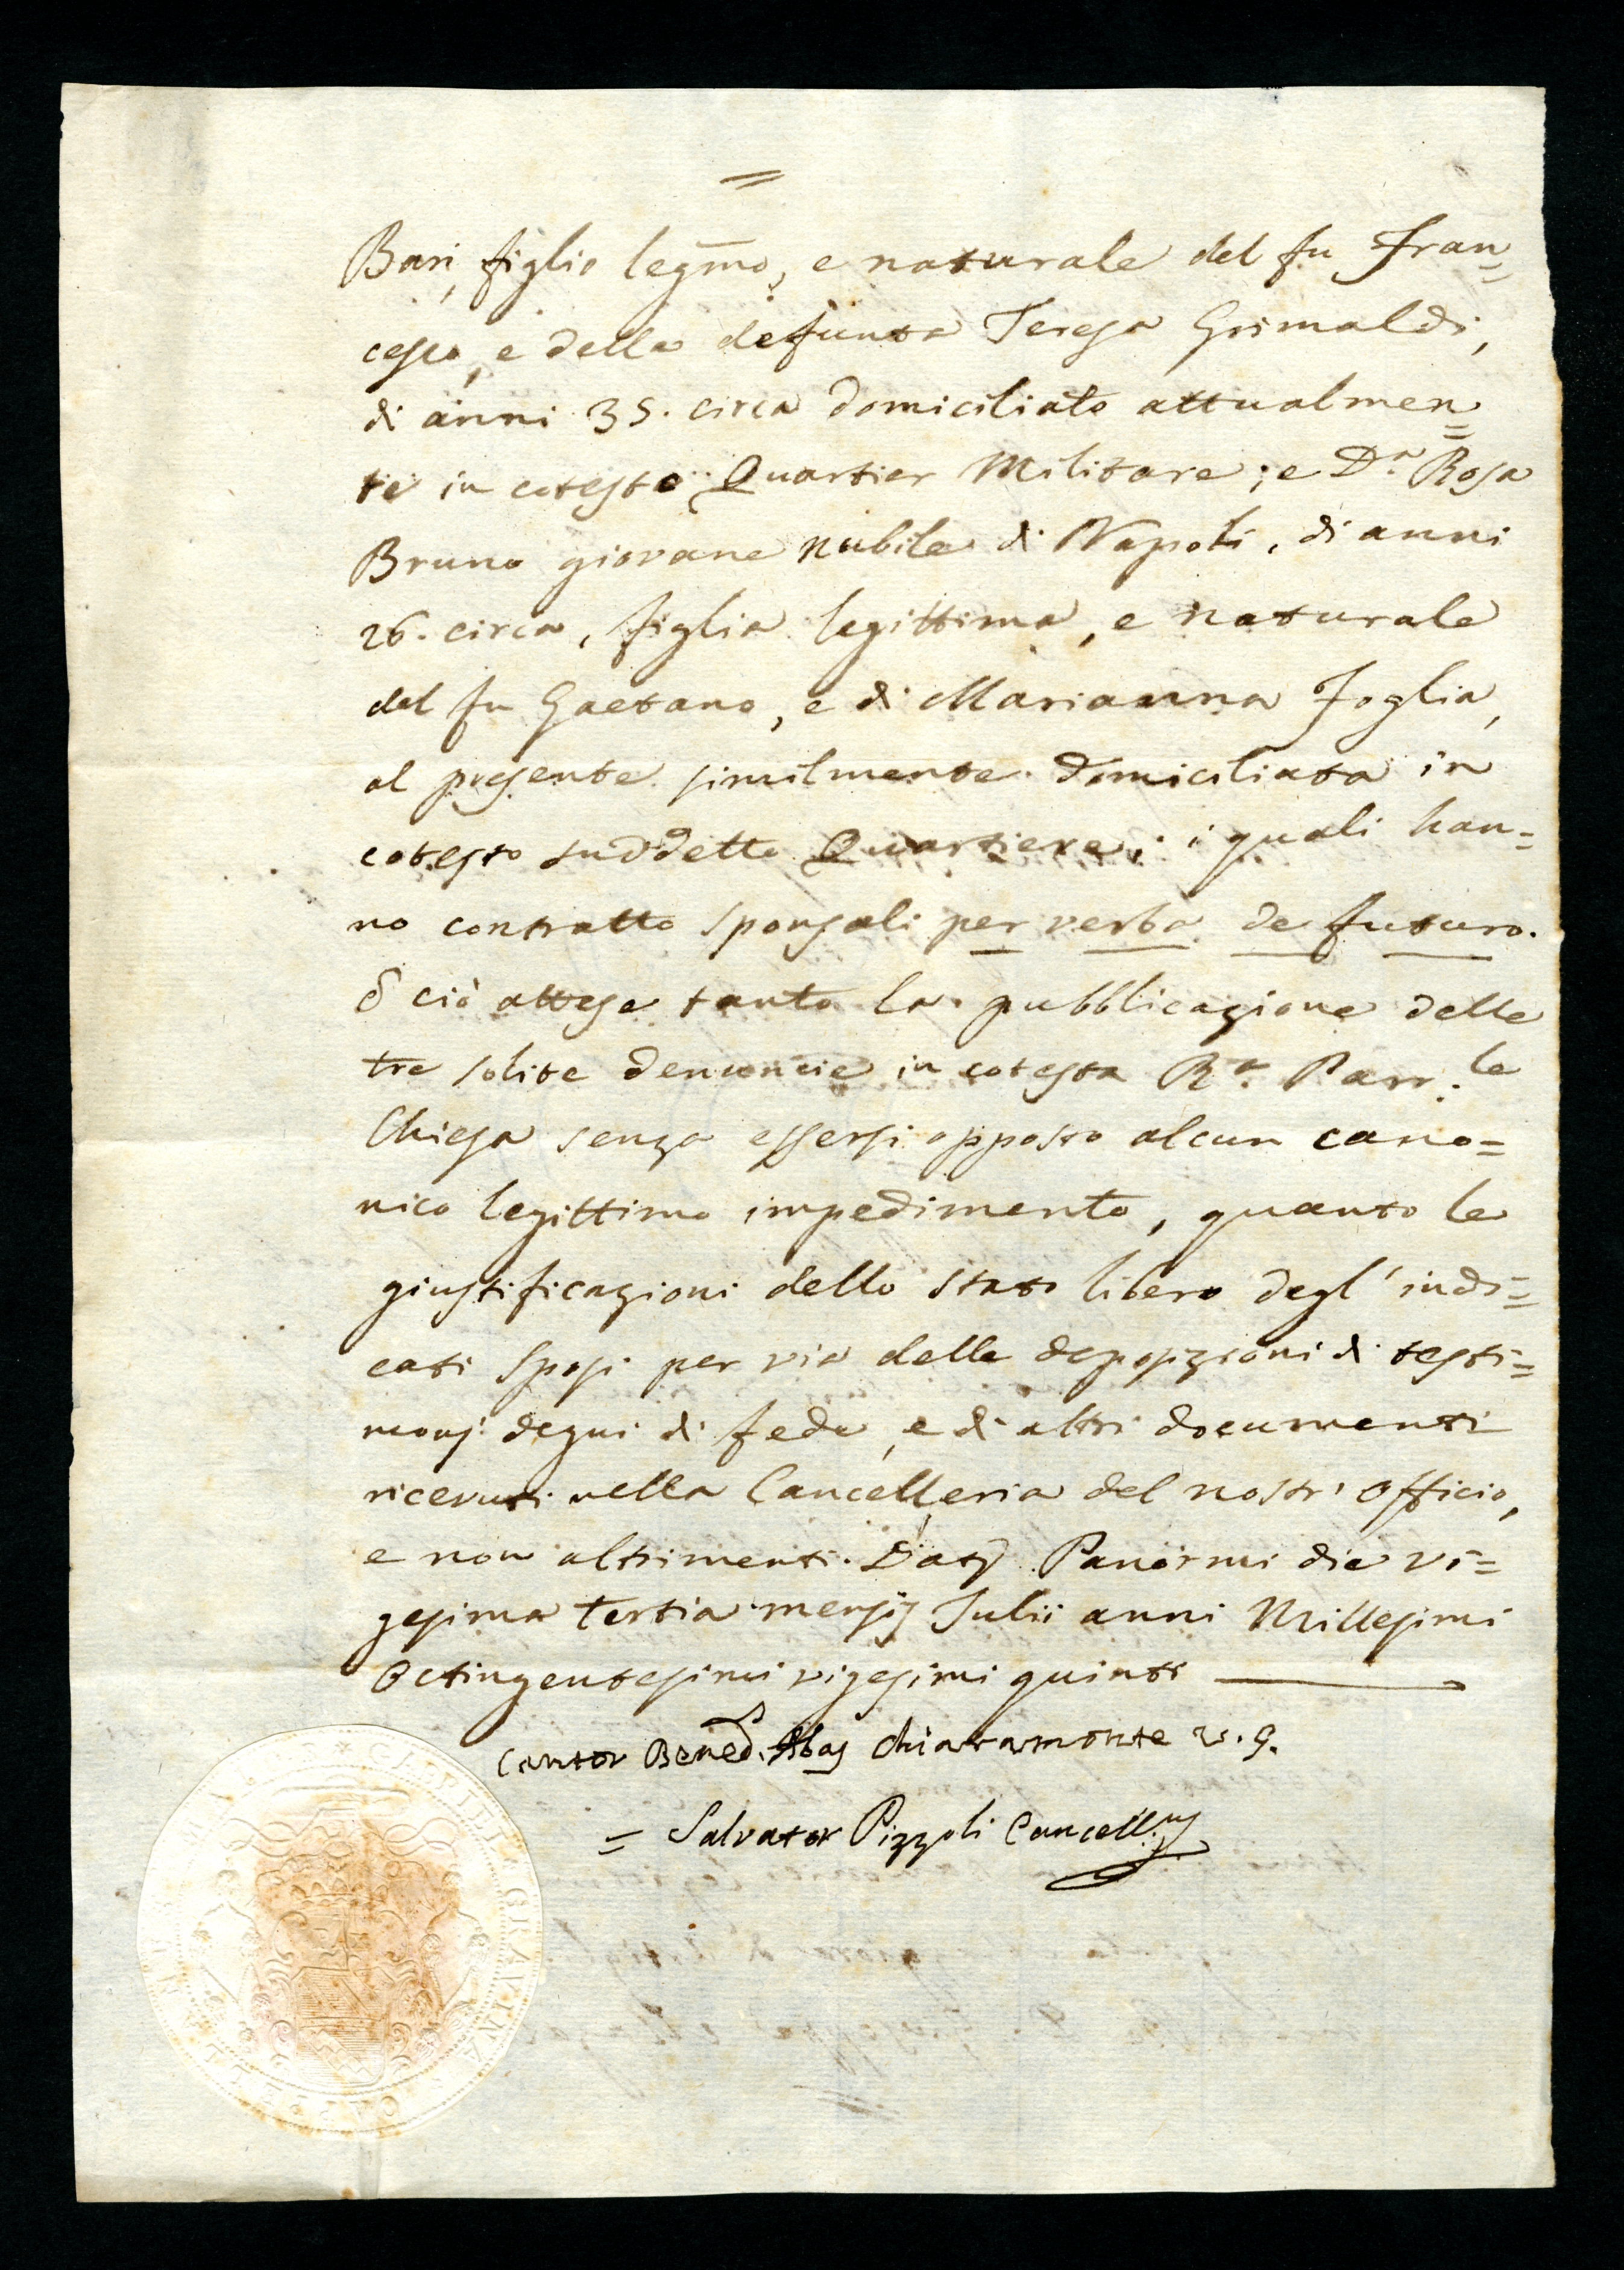 =
Bari, figlio legmo, e naturale del fu Fran=
cesco, e della defunta Teresa Grimaldi,
di anni 35. circa domiciliato attualmen=
te in cotesto Quartier Militare; e D.a Rosa
Bruno giovane nubile di Napoli, di anni
26. circa, figlia legittima, e naturale
del fu Gaetano, e di Marianna Foglia,
al presente similmente domiciliata in
cotesto suddetto Quartiere; i quali han=
no contratto sponsali per verba de futuro.
E ciò attesa tanto la pubblicazione delle
tre solite denuncie in cotesta R.a Parr.le
Chiesa senza essersi opposto alcun cano=
nico legittimo impedimento, quanto le
giustificazioni dello stato libero degl' indi=
cati Sposi per via delle deposizioni di testi=
monj degni di fede, e di altri documenti
ricevuti nella Cancelleria del nostr' officio,
e non altrimenti. Datj Panormi die vi=
gesima tertia mensis Julii anni Millesimi
Octingentesimi vigesimi quinti
Cantor Bened. Abas Chiaramonte v. g.
= Salvator Pizzoli Cancell.us
GRAVINA